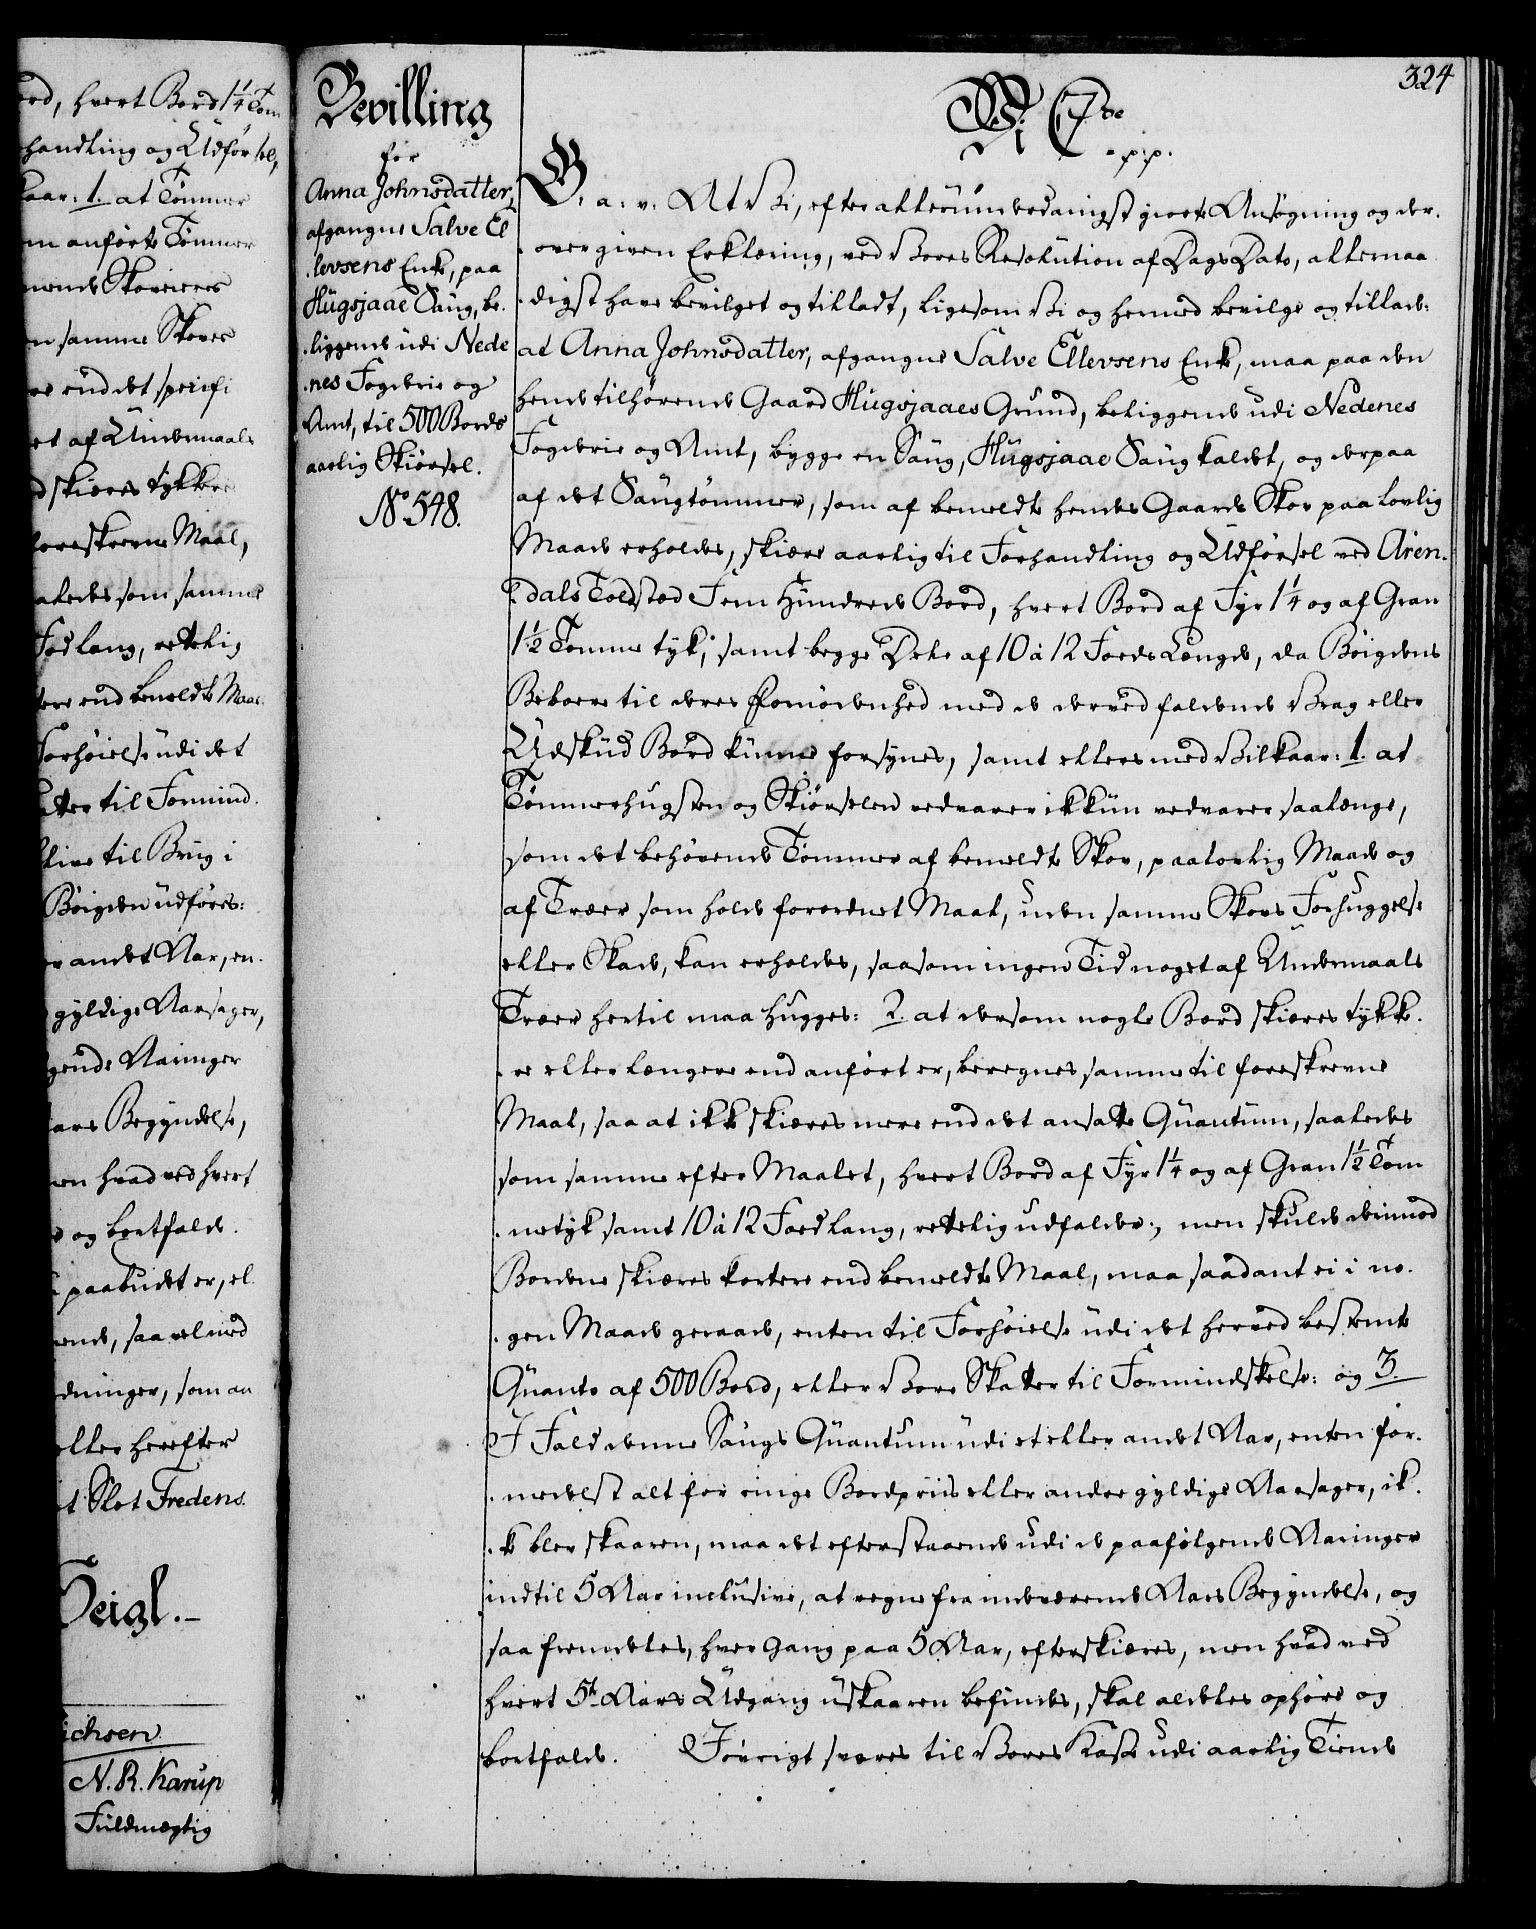 ord, hvert Bord 1 1/4 Tom
handling og Udførsel,
kaar: 1. at Tømmer
m anførte Tømmer
mende Skoveiere
n samme Skoves
re end det specifi
et af Undermaals
d skiæres tykkere
foreskrevne Maal,
aaledes som samme
Fod lang, rettelig
tere end bemeldte Maal.
Forhøielse udi det
atter til Formind.
blive til Brug i
Bøigden udføres:
er andet Aar, en.
gyldige Aarsager,
gende Aaringer
ars Begyndelse,
en hvad ved hvert
e og bortfalde.
paabudet er, el.
ende, saavel med
dninger, som an
eller herefter
t Slot Fredens.
Seigl.
ichsen
N. R. Karup
Fuldmægtig
Bevilling
for
Anna Johnsdatter,
afgangne Salve El
levsens Enke, paa
Hugsjaae Saug, be.
liggende udi Nede
nes Fogderie og
Amt, til 500 Bords
aarlig Skiørsel.
No 548.
324
Wi C 7de
p:p.
G. a: v: At Vi, efter allerunderdanigst giorte Ansøgning og der.
over given Erklæring, ved Vores Resolution af Dags Dato, allernaa
digst have bevilget og tilladt, ligesom Vi og hermed bevilge og tillade:
at Anna Johnsdatter, afgangne Salve Ellevsens Enke, maa paa den
hende tilhørende Gaard Hugsjaaes Grund, beliggende udi Nedenes
Fogderie og Amt, bygge en Saug, Hugsjaae Saug kaldet, og derpaa
af det Saugtømmer, som af bemeldte hendes Gaards Skov paa lovlig
Maade erholdes, skiære aarlig til Forhandling og Udførsel ved Aren.
dals Toldsted Fem Hundrede Bord, hvert Bord af Fyr 1 1/4 og af Gran
1 1/2 Tomme tyk, samt begge Dele af 10 à 12 Foeds Længde, da Bøigdens
Beboere til deres Fornødenhed med de derved faldende Vrag eller
Udskud Bord kunne forsynes, samt ellers med Vilkaar: 1. at
Tømmerhugsten og Skiørselen vedvarer ikkun vedvarer saalænge,
som det behøvende Tømmer af bemeldte Skov, paa lovlig Maade og
af Træer som holde forordnet Maal, uden samme Skovs Forhuggelse
eller Skade, kan erholdes, saasom ingen Tid noget af Undermaals
Træer hertil maa hugges: 2. at dersom nogle Bord skiæres tykke.
re eller længere end anført er, beregnes samme til foreskrevne
Maal, saa at ikke skiæres mere end det ansatte Quantum, saaledes
som samme efter Maalet, hvert Bord af Fyr 1 1/4 og af Gran 1 1/2 Tom
me tyk samt 10 à 12 Foed lang, rettelig udfalder, men skulde derimod
Bordene skiæres kortere end bemeldte Maal, maa saadant ei i no.
gen Maade geraade, enten til Forhøielse udi det herved bestemte
Quanto af 500 Bord, eller Vore Skatter til Formindskelse: og 3.
I Fald denne Saugs Quantum udi et eller andet Aar, enten for.
medelst alt for ringe Bordpriis eller andre gyldige Aarsager, ik.
ke blev skaaren, maa det efterstaaende udi de paafølgende Aaringer
indtil 5 Aar inclusive, at regne fra indeværende Aars Begyndelse, og
saa fremdeles, hver Gang paa 5 Aar, efterskiæres, men hvad ved
hvert 5te Aars Udgang uskaaren befindes, skal aldeles ophøre og
bortfalde. Iøvrigt svares til Vores Kasse udi aarlig Tiende